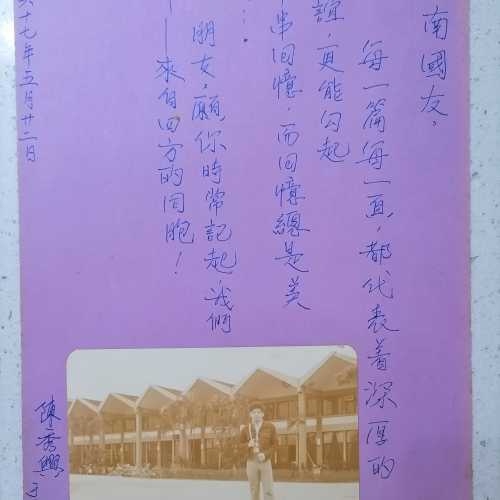 南國友,
每一篇每一頁,都代表着深厚的
誼,更能勾起
串回憶,而回憶總是美
…
朋友,願你時常記起,我們
——來自四方的同胞!
十七年五月廿二日
陳秀興